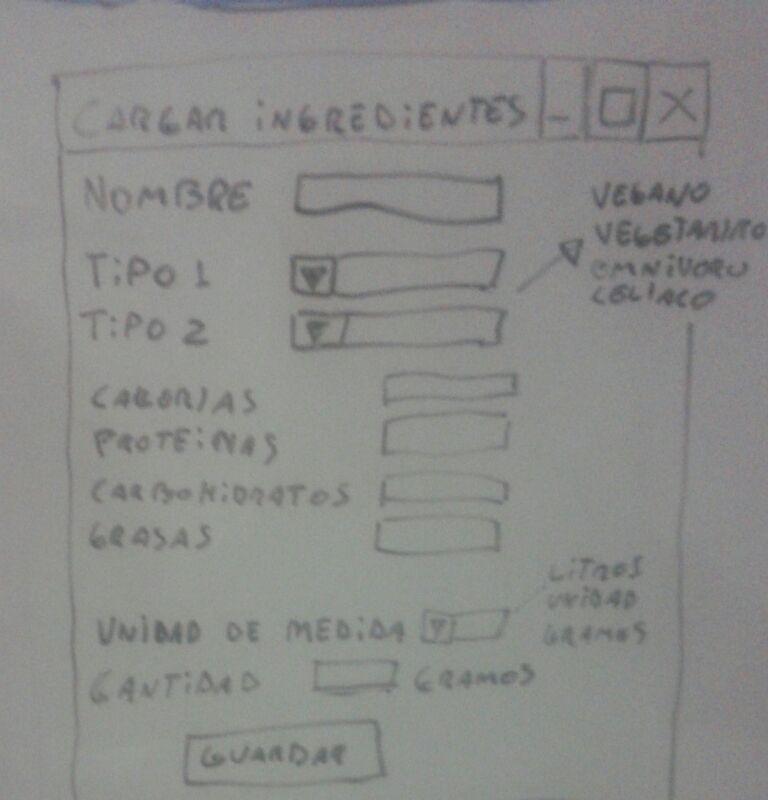 CARGAR INGREDIENTES _ □ X
NOMBRE
TIPO 1
TIPO 2
VEGANO
VEGETARIANO
OMNIVORO
CELIACO
CALORIAS
PROTEINAS
CARBOHIDRATOS
GRASAS
UNIDAD DE MEDIDA
LITROS
UNIDAD
GRAMOS
CANTIDAD GRAMOS
GUARDAR